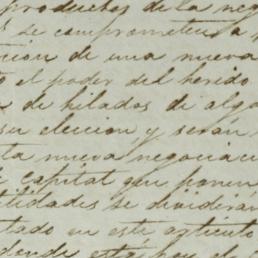 productos de la neg
s se comprometen a
cion de una nueva
o el poder del herido
a de hilados de algo
su eleccion, y serán
ta nueva negociaci
capital que ponen
ilidades se dividiran
tado en este articulo
donde